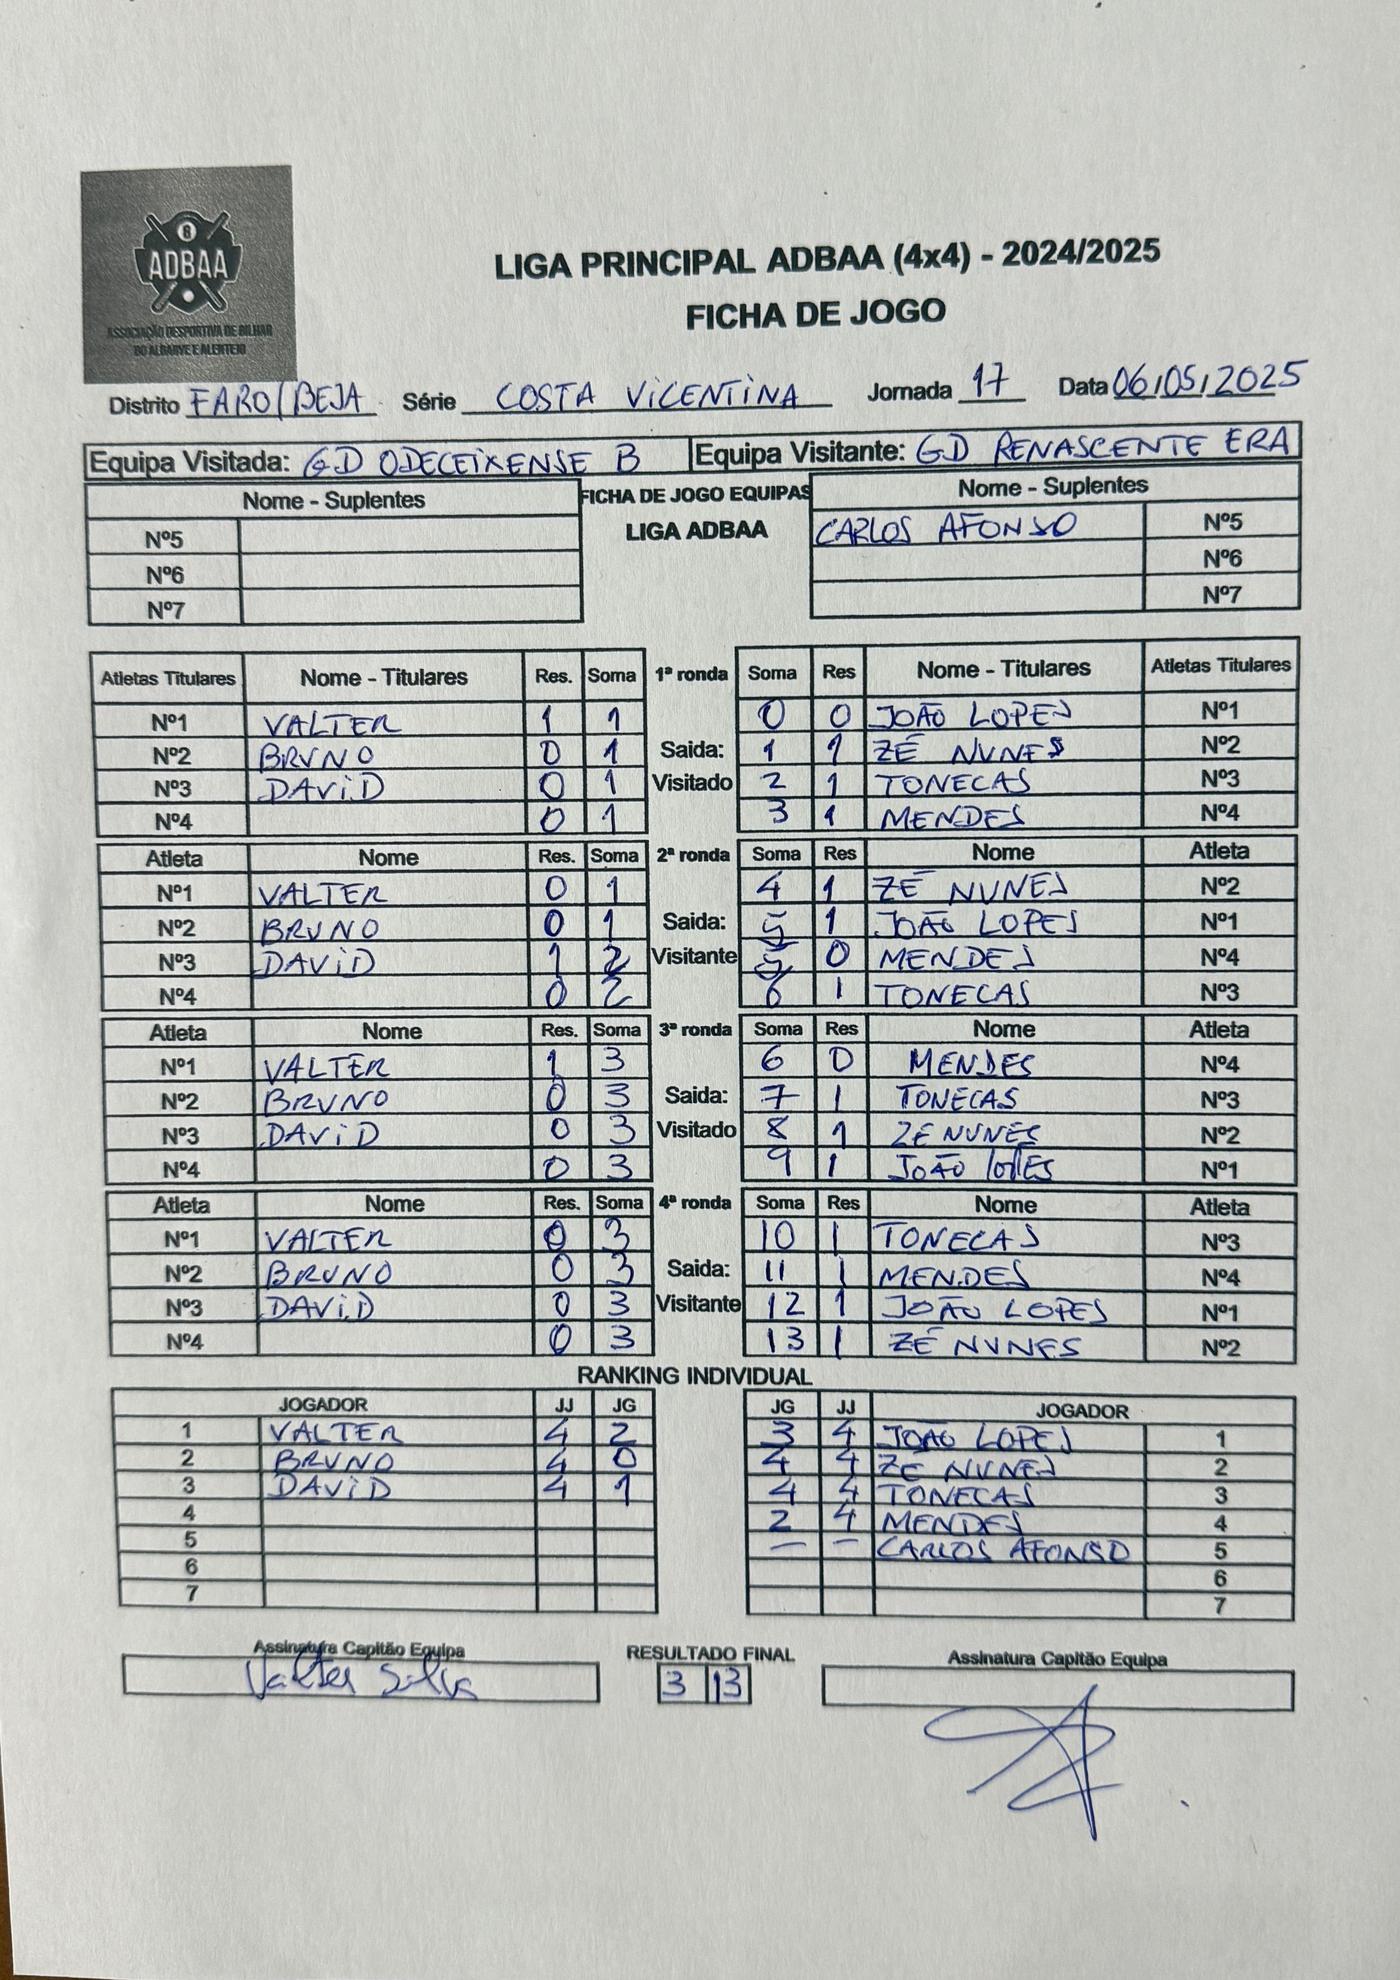 8
ADBAA
ASSOCIAÇÃO DESPORTIVA DE BILHAR
DO ALGARVE E ALENTEJO
LIGA PRINCIPAL ADBAA (4x4) - 2024/2025
FICHA DE JOGO
Distrito FARO/BEJA Série COSTA VICENTINA Jornada 17 Data 06/05/2025
Equipa Visitada: GD ODECEIXENSE B Equipa Visitante: GD RENASCENTE ERA
Nome - Suplentes FICHA DE JOGO EQUIPAS Nome - Suplentes
Nº5 LIGA ADBAA CARLOS AFONSO Nº5
Nº6 Nº6
Nº7 Nº7
Atletas Titulares Nome - Titulares Res. Soma 1ª ronda Soma Res Nome - Titulares Atletas Titulares
Nº1 VALTER 1 1 0 0 JOÃO LOPES Nº1
Nº2 BRUNO 0 1 Saida: 1 1 ZÉ NUNES Nº2
Nº3 DAVID 0 1 Visitado 2 1 TONECAS Nº3
Nº4 0 1 3 1 MENDES Nº4
Atleta Nome Res. Soma 2ª ronda Soma Res Nome Atleta
Nº1 VALTER 0 1 4 1 ZÉ NUNES Nº2
Nº2 BRUNO 0 1 Saida: 5 1 JOÃO LOPES Nº1
Nº3 DAVID 1 2 Visitante 5 0 MENDES Nº4
Nº4 0 2 6 1 TONECAS Nº3
Atleta Nome Res. Soma 3ª ronda Soma Res Nome Atleta
Nº1 VALTER 1 3 6 0 MENDES Nº4
Nº2 BRUNO 0 3 Saida: 7 1 TONECAS Nº3
Nº3 DAVID 0 3 Visitado 8 1 ZE NUNES Nº2
Nº4 0 3 9 1 JOÃO LOPES Nº1
Atleta Nome Res. Soma 4ª ronda Soma Res Nome Atleta
Nº1 VALTER 0 3 10 1 TONECAS Nº3
Nº2 BRUNO 0 3 Saida: 11 1 MENDES Nº4
Nº3 DAVID 0 3 Visitante 12 1 JOÃO LOPES Nº1
Nº4 0 3 13 1 ZÉ NUNES Nº2
RANKING INDIVIDUAL
JOGADOR JJ JG JG JJ JOGADOR
1 VALTER 4 2 3 4 JOÃO LOPES 1
2 BRUNO 4 0 4 4 ZE NUNES 2
3 DAVID 4 1 4 4 TONECAS 3
4 2 4 MENDES 4
5 — — CARLOS AFONSO 5
6 6
7 7
Assinatura Capitão Equipa RESULTADO FINAL Assinatura Capitão Equipa
Valter Silva 3 13